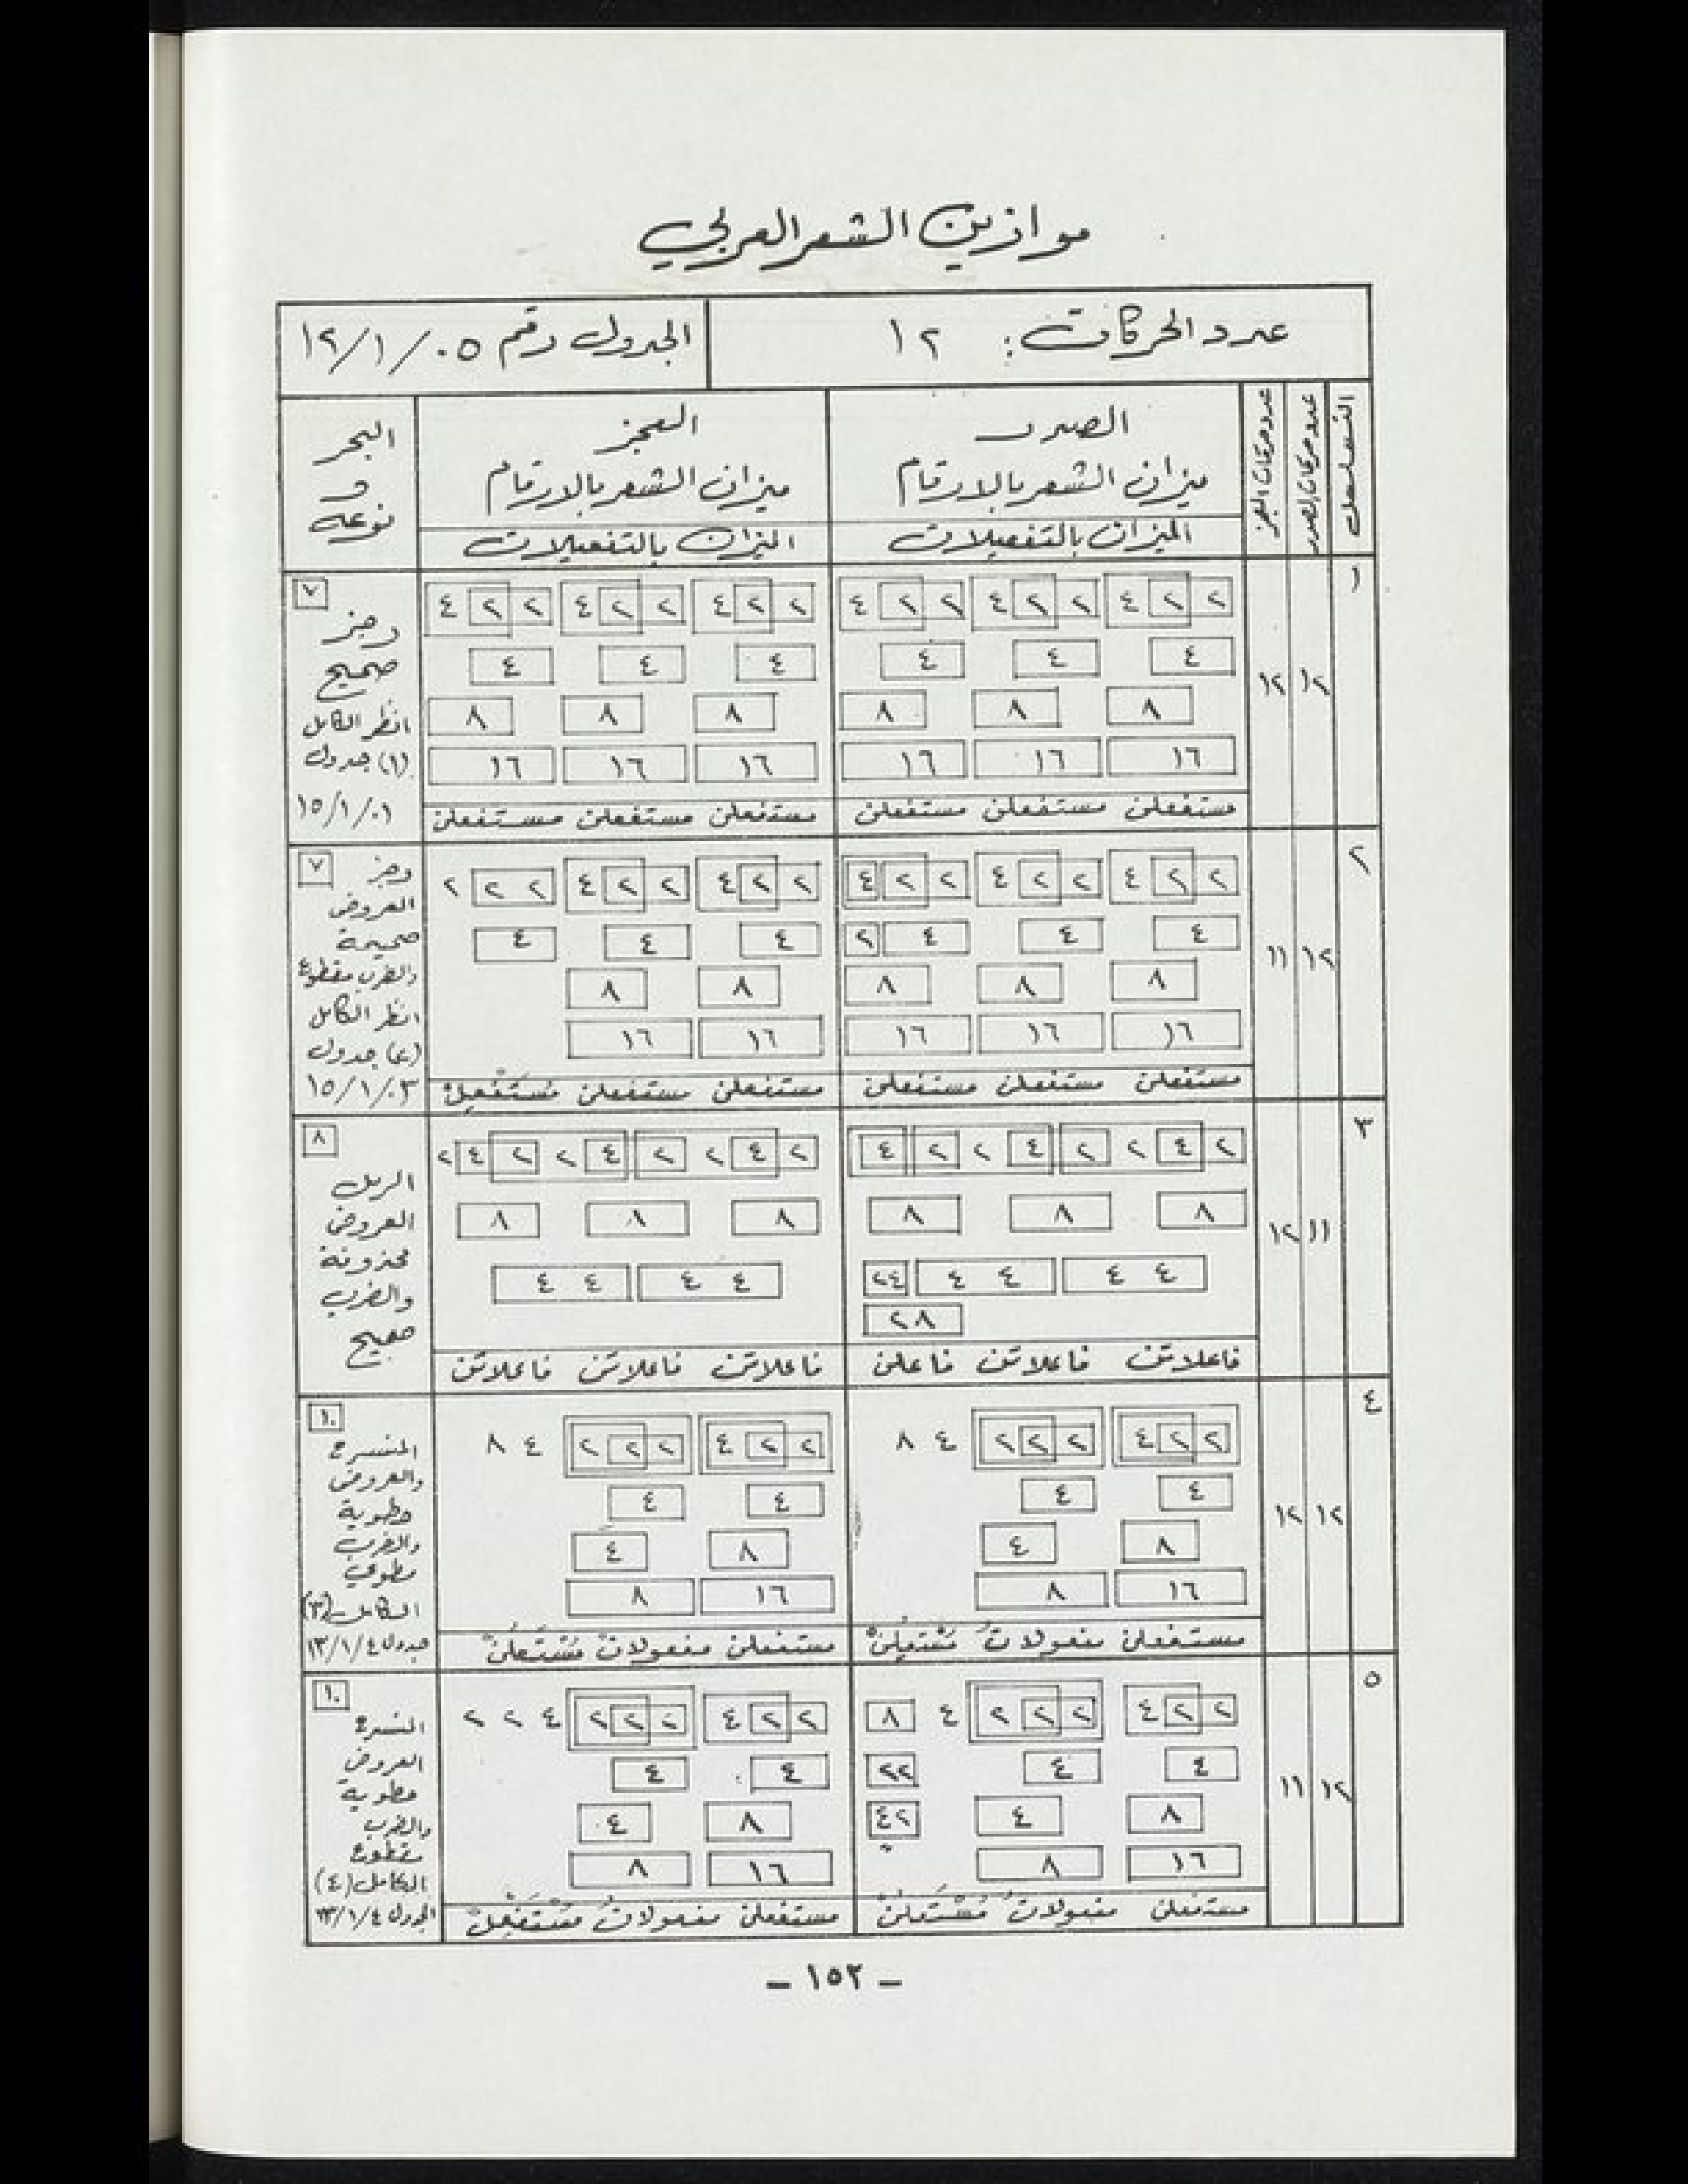 موازين الشعر العربي
عدد الحركات: ١٢
الجدول رقم ١٢/١/٠٥
التسلسل
عدد حركات الصدر
عدد حركات العجز
الصدر
ميزان الشعر بالارقام
الميزان بالتفعيلات
العجز
ميزان الشعر بالارقام
الميزان بالتفعيلات
البحر
و
نوعه
١
١٢
١٢
٢ ٢ ٤ ٢ ٢ ٤ ٢ ٢ ٤
٤ ٤ ٤
٨ ٨ ٨
١٦ ١٦ ١٦
مستفعلن مستفعلن مستفعلن
٢ ٢ ٤ ٢ ٢ ٤ ٢ ٢ ٤
٤ ٤ ٤
٨ ٨ ٨
١٦ ١٦ ١٦
مستفعلن مستفعلن مستفعلن
٧
رجز
صحيح
انظر الكامل
(١) جدول
١٥/١/٠١
٢
١٢
١١
٢ ٢ ٤ ٢ ٢ ٤ ٢ ٢ ٤
٤ ٤ ٤ ٢
٨ ٨ ٨
١٦ ١٦ ١٦
مستفعلن مستفعلن مستفعلن
٢ ٢ ٤ ٢ ٢ ٤ ٢ ٢ ٢
٤ ٤ ٤
٨ ٨
١٦ ١٦
مستفعلن مستفعلن مُسْتَفْعِلْ
٧
رجز
العروض
صحيحة
والضرب مقطوع
انظر الكامل
(٤) جدول
١٥/١/٠٣
٣
١١
١٢
٢ ٤ ٢ ٢ ٤ ٢ ٢ ٤
٨ ٨ ٨
٤ ٤ ٤ ٤ ٢٤
٢٨
فاعلاتن فاعلاتن فاعلن
٢ ٤ ٢ ٢ ٤ ٢ ٢ ٤ ٢
٨ ٨ ٨
٤ ٤ ٤ ٤
فاعلاتن فاعلاتن فاعلاتن
٨
الرمل
العروض
محذوفة
والضرب
صحيح
٤
١٢
١٢
٢ ٢ ٤ ٢ ٢ ٢ ٤ ٨
٤ ٤
٨ ٤
١٦ ٨
مستفعلن مفعولاتُ مُسْتَعِلُنْ
٢ ٢ ٤ ٢ ٢ ٢ ٤ ٨
٤ ٤
٨ ٤
١٦ ٨
مستفعلن مفعولاتُ مُسْتَعِلُنْ
١٠
المنسرح
والعروض
مطوية
والضرب
مطوي
الكامل (٣)
جدول ١٣/١/٤
٥
١٢
١١
٢ ٢ ٤ ٢ ٢ ٢ ٤ ٨
٤ ٤ ٢٢
٨ ٤ ٤٢
١٦ ٨
مستفعلن مفعولاتُ مُسْتَعِلُنْ
٢ ٢ ٤ ٢ ٢ ٢ ٤ ٢ ٢
٤ ٤
٨ ٤
١٦ ٨
مستفعلن مفعولاتُ مُسْتَفْعِلْ
١٠
المنسرح
العروض
مطوية
والضرب
مقطوع
الكامل (٤)
الجدول ١٣/١/٤
– ١٥٢ –